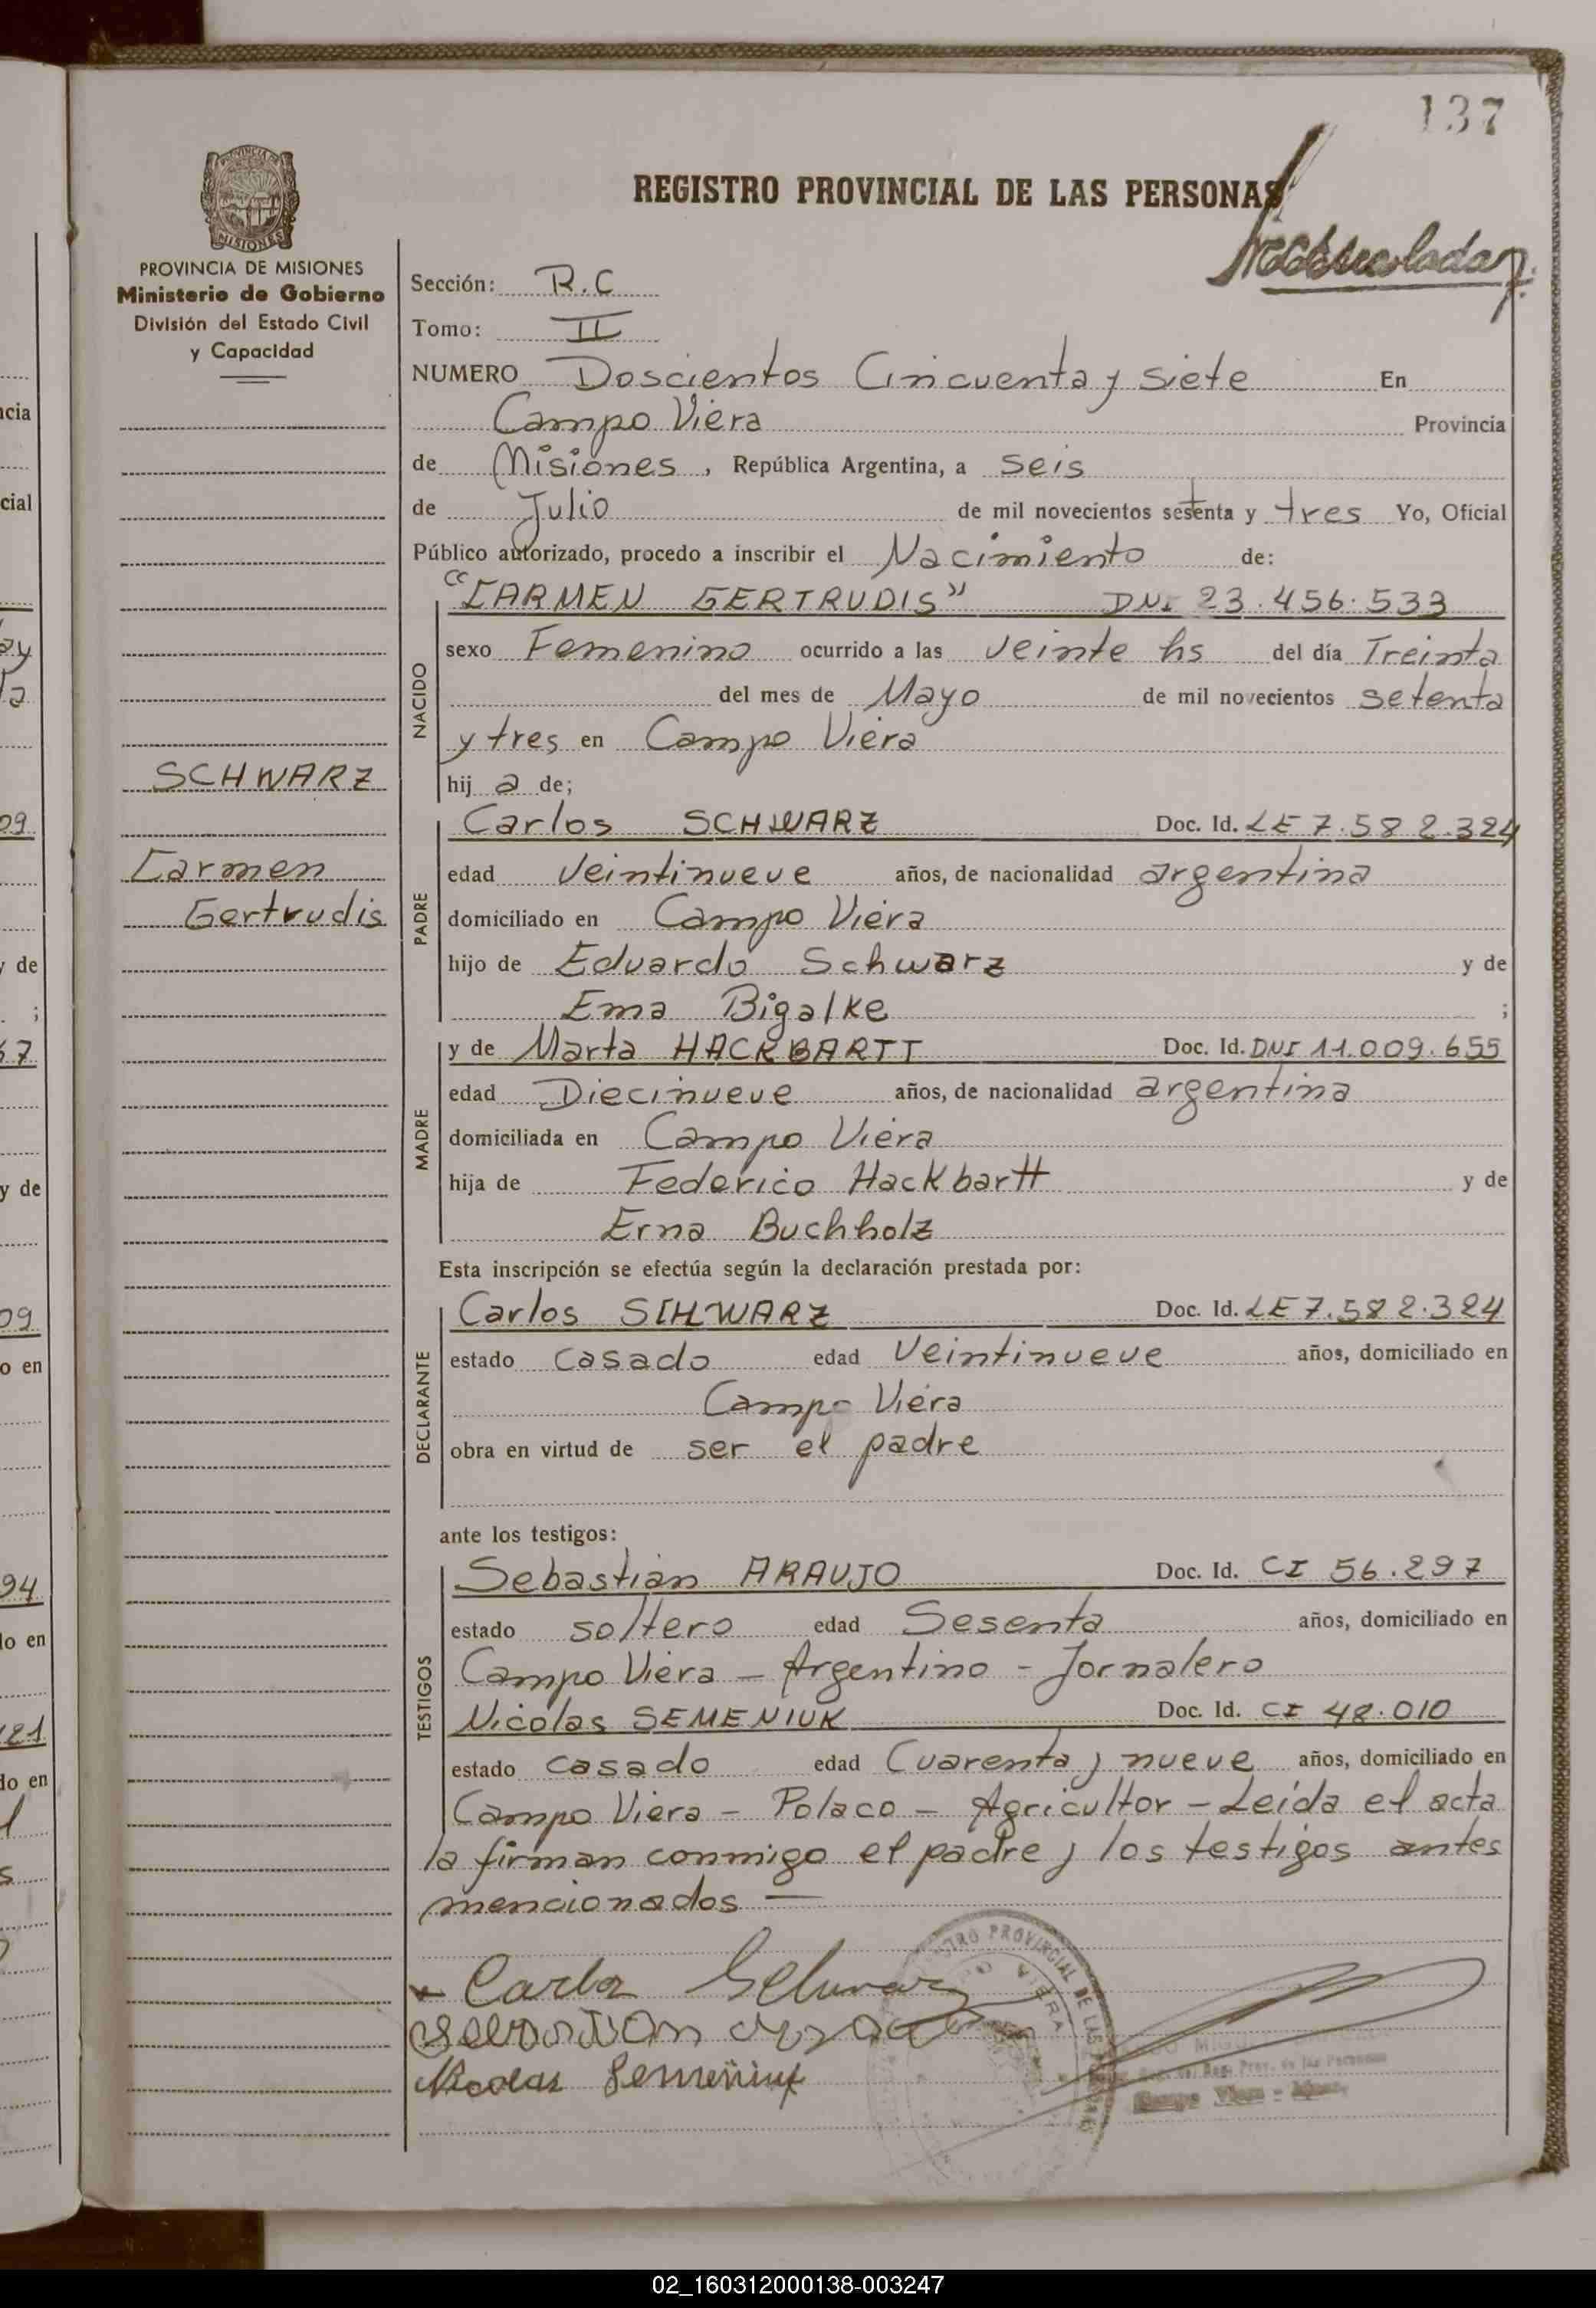 137
PROVINCIA DE
MISIONES
REGISTRO PROVINCIAL DE LAS PERSONAS
PROVINCIA DE MISIONES
Ministerio de Gobierno
División del Estado Civil
y Capacidad
SCHWARZ
Carmen
Gertrudis
Sección: R.C
Tomo: II
NUMERO Doscientos Cincuenta y siete En
Campo Viera Provincia
de Misiones, República Argentina, a seis
de Julio de mil novecientos setenta y tres Yo, Oficial
Público autorizado, procedo a inscribir el Nacimiento de:
"CARMEN GERTRUDIS" DNI 23.456.533
NACIDO
sexo Femenino ocurrido a las veinte hs del día Treinta
del mes de Mayo de mil novecientos setenta
y tres en Campo Viera
hij a de;
PADRE
Carlos SCHWARZ Doc. Id. LE 7.582.324
edad Veintinueve años, de nacionalidad argentina
domiciliado en Campo Viera
hijo de Eduardo Schwarz y de
Ema Bigalke ;
MADRE
y de Marta HACKBARTT Doc. Id. DNI 11.009.655
edad Diecinueve años, de nacionalidad argentina
domiciliada en Campo Viera
hija de Federico Hackbartt y de
Erna Buchholz
Esta inscripción se efectúa según la declaración prestada por:
DECLARANTE
Carlos SCHWARZ Doc. Id. LE 7.582.324
estado casado edad Veintinueve años, domiciliado en
Campo Viera
obra en virtud de ser el padre
ante los testigos:
TESTIGOS
Sebastián ARAUJO Doc. Id. CI 56.297
estado soltero edad Sesenta años, domiciliado en
Campo Viera - Argentino - Jornalero
Nicolas SEMENIUK Doc. Id. CI 48.010
estado casado edad Cuarenta y nueve años, domiciliado en
Campo Viera - Polaco - Agricultor - Leída el acta
la firman conmigo el padre y los testigos antes
mencionados —
Carlos Schwarz
Nicolas Semeniuk
REGISTRO PROVINCIAL DE LAS PERSONAS
VIERA
Reg. Prov. de las Personas
Campo Viera - Mnes.
ncia
cial
09
y de
;
67
y de
09
o en
94
lo en
121
lo en
02_160312000138-003247